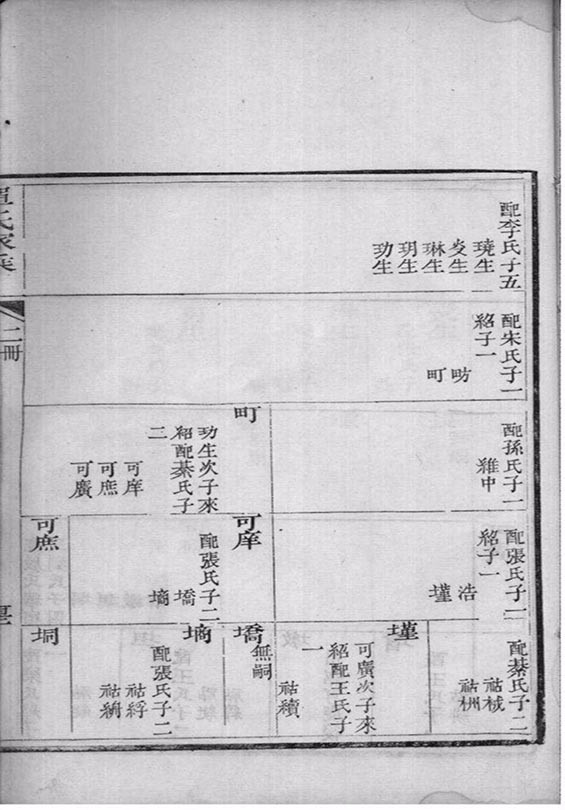 配李氏子五
琓生
炗生
琳生
玥生
玏生
配宋氏子一
紹子一
昉
町
配孫氏子一
維中
町
玏生次子來
紹配綦氏子
三
可庠
可庶
可廣
配張氏子一
紹子一
浩
墐
可庠
配張氏子二
墧
墑
可庶
配綦氏子二
祜棫
祜栦
墐
可廣次子來
紹配王氏子
一
祜續
墧
無嗣
墑
配張氏子二
祜綍
祜綃
坰
單氏家乘
二冊